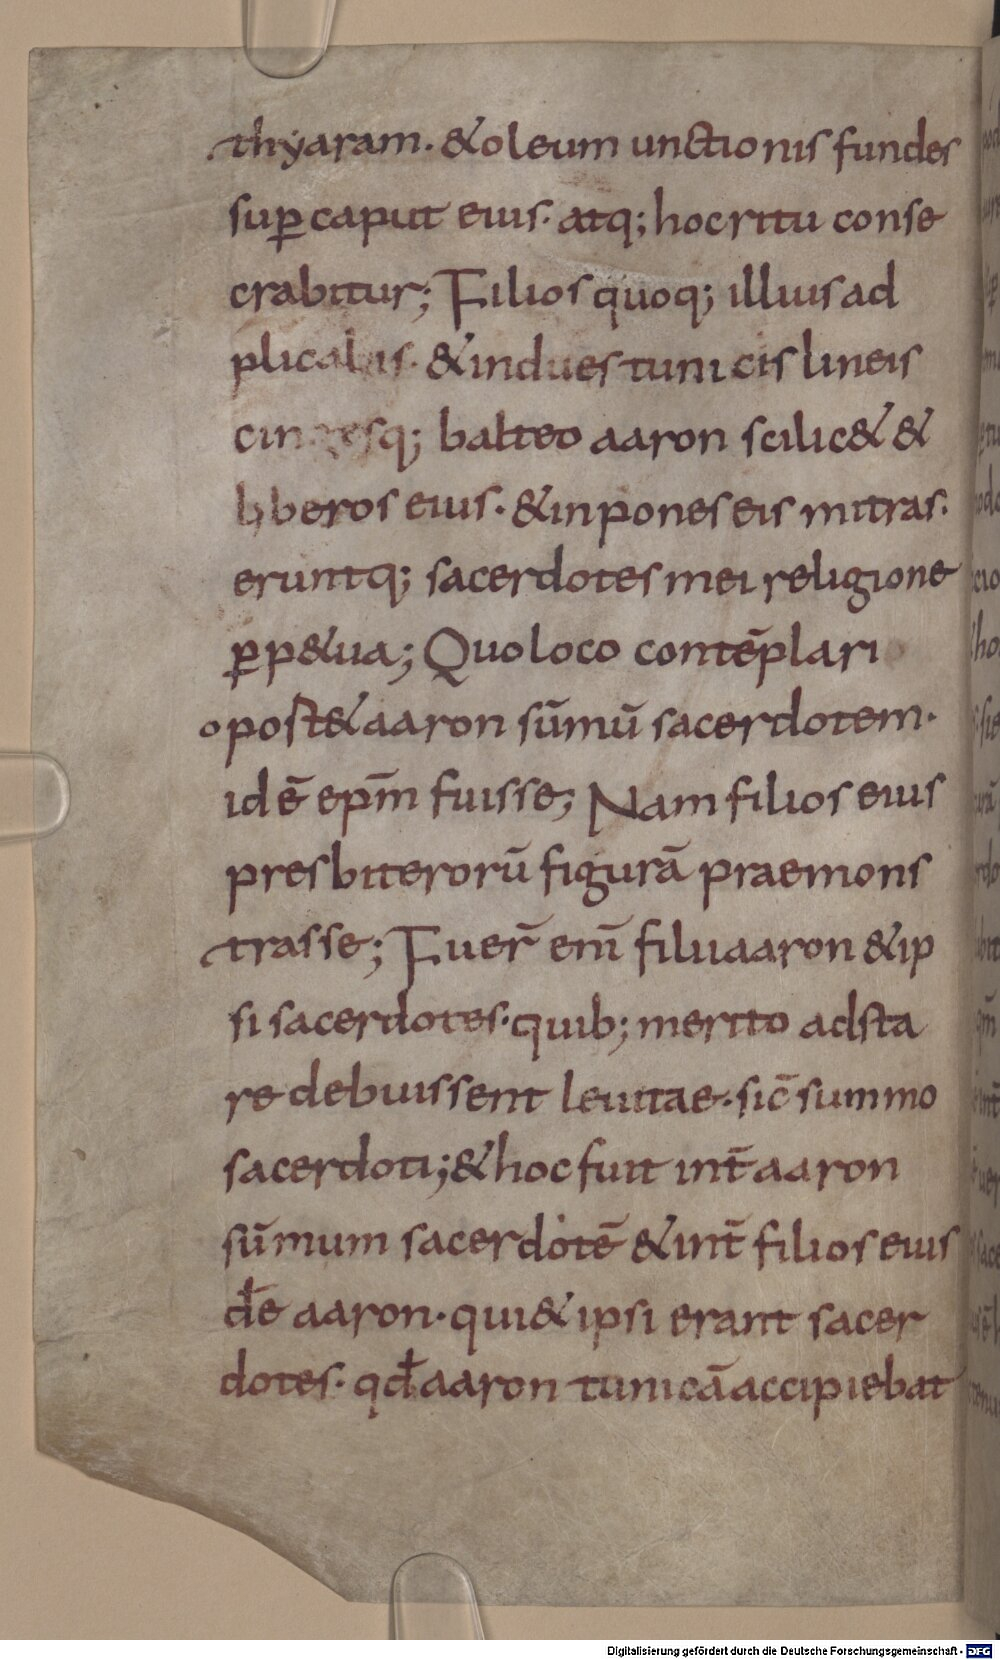 thyaram. & oleum unctionis fundes
sup̱ caput eius. atq; hoc ritu conse
crabitur; Filios quoq; illius ad
plicabis. & indues tunicis lineis
cingesq; balteo aaron scilic& &
liberos eius. & inpones eis mitras.
eruntq; sacerdotes mei religione
p̱p&ua; Quo loco contēplari
oport& aaron sūmū sacerdotem.
idē ep̄m fuisse; Nam filios eius
presbiterorū figurā praemons
trasse; Fuer̄ enī filii aaron & ip
si sacerdotes. quib; merito adsta
re debuissent leuitae. sic̄ summo
sacerdoti; & hoc fuit int̄ aaron
sūmum sacerdotē & int̄ filios eius
đe aaron. qui & ipsi erant sacer
dotes. qđ aaron tunicā accipiebat
Digitalisierung gefördert durch die Deutsche Forschungsgemeinschaft - DFG